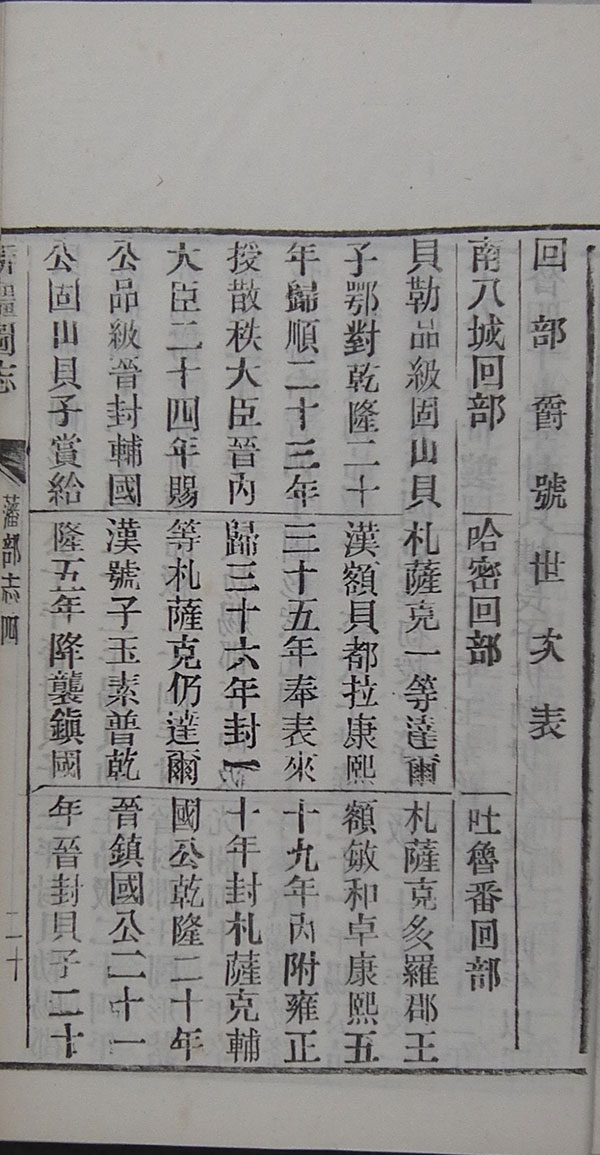 回部爵號世次表
南八城回部
貝勒品級固山貝
子鄂對乾隆二十
年歸順二十三年
授散秩大臣晉內
大臣二十四年賜
公品級晉封輔國
公固山貝子賞給
哈密回部
札薩克一等達爾
漢額貝都拉康熙
三十五年奉表來
歸三十六年封一
等札薩克仍達爾
漢號子玉素普乾
隆五年降襲鎮國
吐魯番回部
札薩克多羅郡王
額敏和卓康熙五
十九年內附雍正
十年封札薩克輔
國公乾隆二十年
晉鎮國公二十一
年晉封貝子二十
新疆圖志
藩部志四
二十